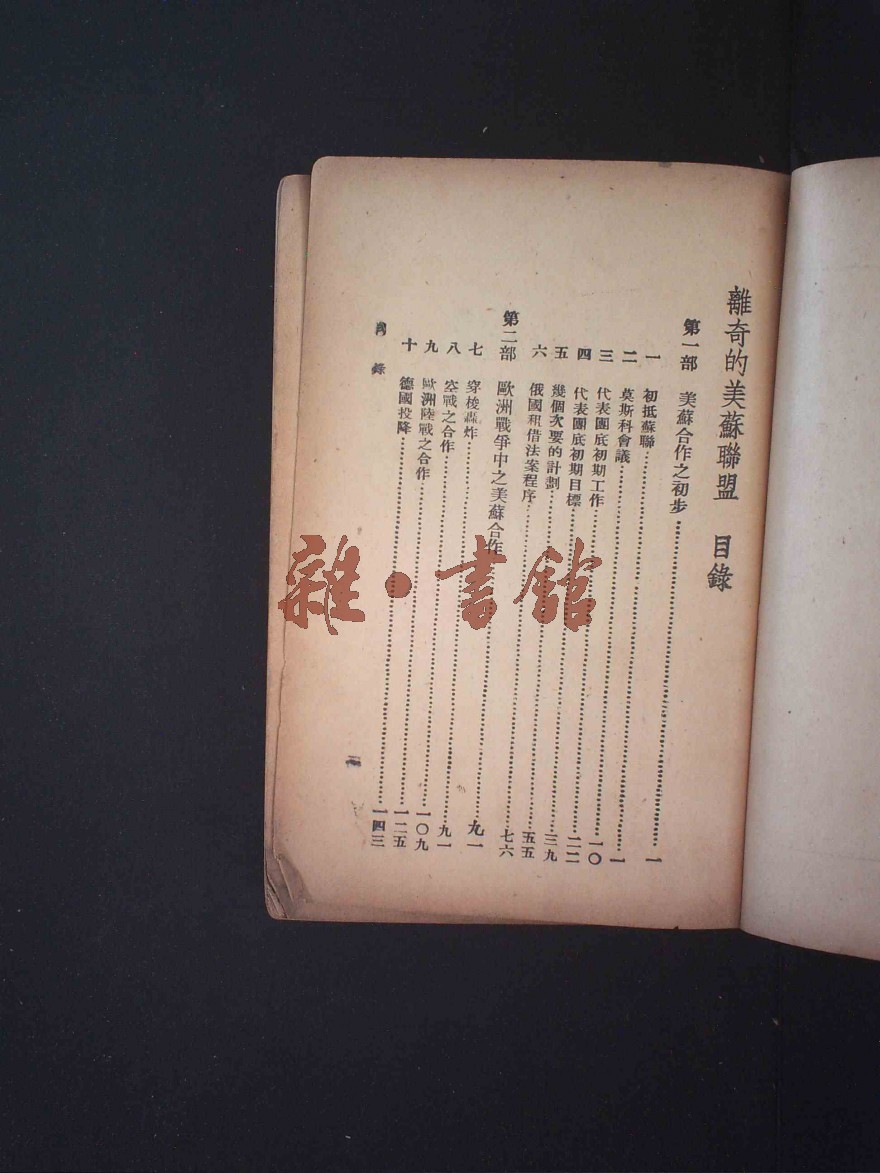 離奇的美蘇聯盟 目錄
第一部 美蘇合作之初步……一
一 初抵蘇聯……一
二 莫斯科會議……一〇
三 代表團底初期工作……二二
四 代表團底初期目標……三九
五 幾個次要的計劃……五五
六 俄國租借法案程序……七六
第二部 歐洲戰爭中之美蘇合作……九一
七 穿梭轟炸……九一
八 空戰之合作……一〇九
九 歐洲陸戰之合作……一二五
十 德國投降……一四三
目錄
雜·書館